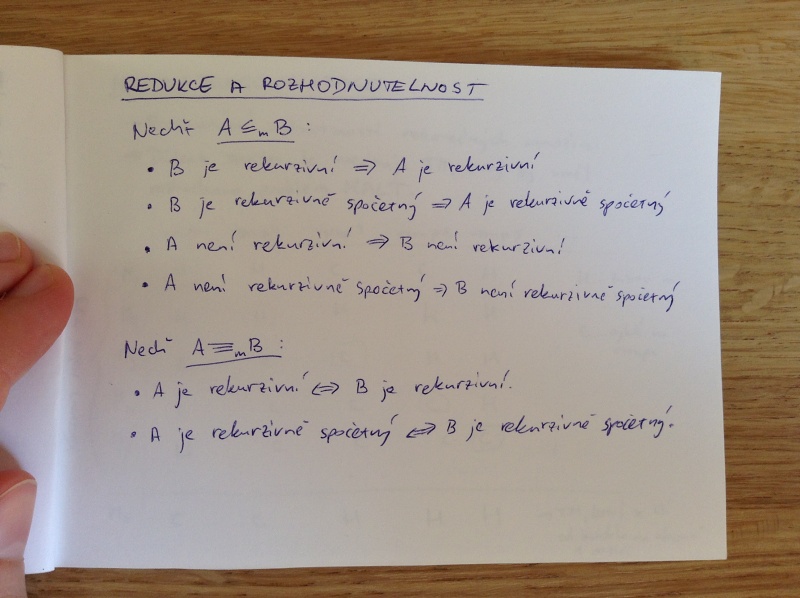 REDUKCE A ROZHODNUTELNOST
Nechť A ≤ₘ B :
• B je rekurzivní ⇒ A je rekurzivní
• B je rekurzivně spočetný ⇒ A je rekurzivně spočetný
• A není rekurzivní ⇒ B není rekurzivní
• A není rekurzivně spočetný ⇒ B není rekurzivně spočetný
Nechť A ≡ₘ B :
• A je rekurzivní ⇔ B je rekurzivní.
• A je rekurzivně spočetný ⇔ B je rekurzivně spočetný.